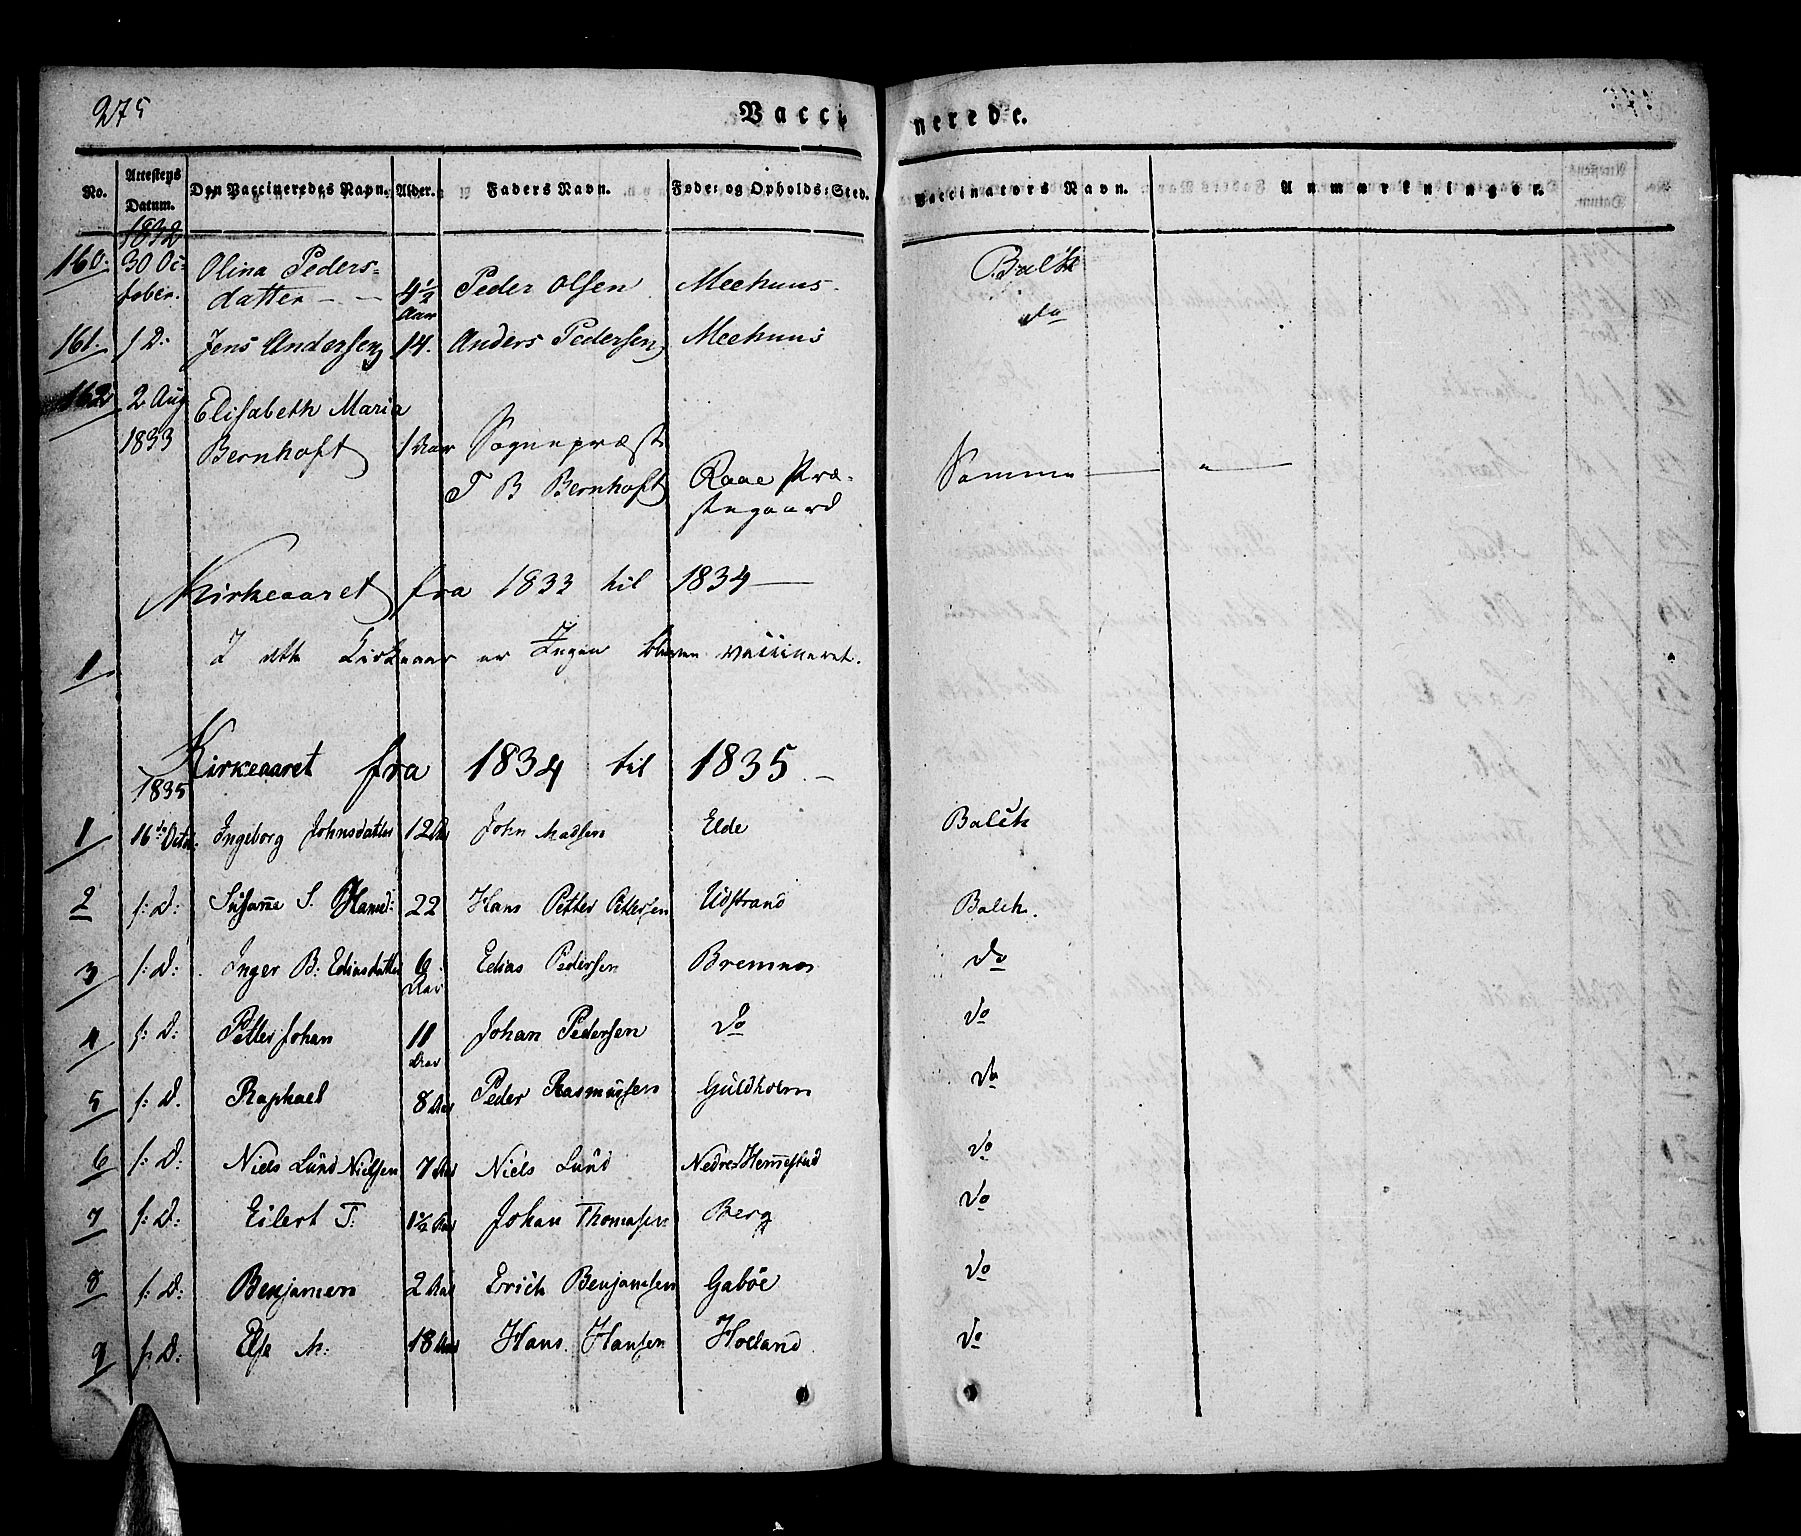 275
Vaccinerede.
No. Attestens Datum. Den Vaccineredes Navn. Alder. Faders Navn. Føde- og Opholds-Sted. Vaccinators Navn. Anmærkninger.
1832
160. 30 Oc- Olina Peders- Balck
tober. datter - - 4 1/2 Aar Peder Olsen Meehuus.
161. s D: Jens Andersen 14. Anders Pedersen Meehuus do
162 2 Aug Elisabeth Maria
1833 Bernhoft 1 Aar Sognepræst Samme — " —
T B Bernhoft Raae Præ-
stegaard
Kirkeaaret fra 1833 til 1834 —
1 I dette Kirkeaar er Ingen bleven vaccineret.
Kirkeaaret fra 1834 til 1835. —
1835
1 16de Octr. Ingeborg Johnsdatter 12 Aar John Madsen Elde Balck
2 s: D: Susanne S. Hansd: 22 Hans Petter Petersen Udstrand Balck.
3 s: D: Inger B: Ediasdatter 6 Aar Edias Pedersen Bremnes do
4 s: D: Petter Johan 11 Aar Johan Pedersen do do
5 s: D. Raphael 8 Aar Peder Rasmussen Guldholm do
6 s: D: Niels Lund Nielsen 7 Aar Niels Lund Nedre Hemestad do
7 s: D: Eilert T: 1 1/2 Aar Johan Thomasen Berg do
8 s: D: Benjamen 2 Aar Erich Benjamsen Gaböe do
9 s: D: Else M: 18 Aar Hans. Hansen Holland do